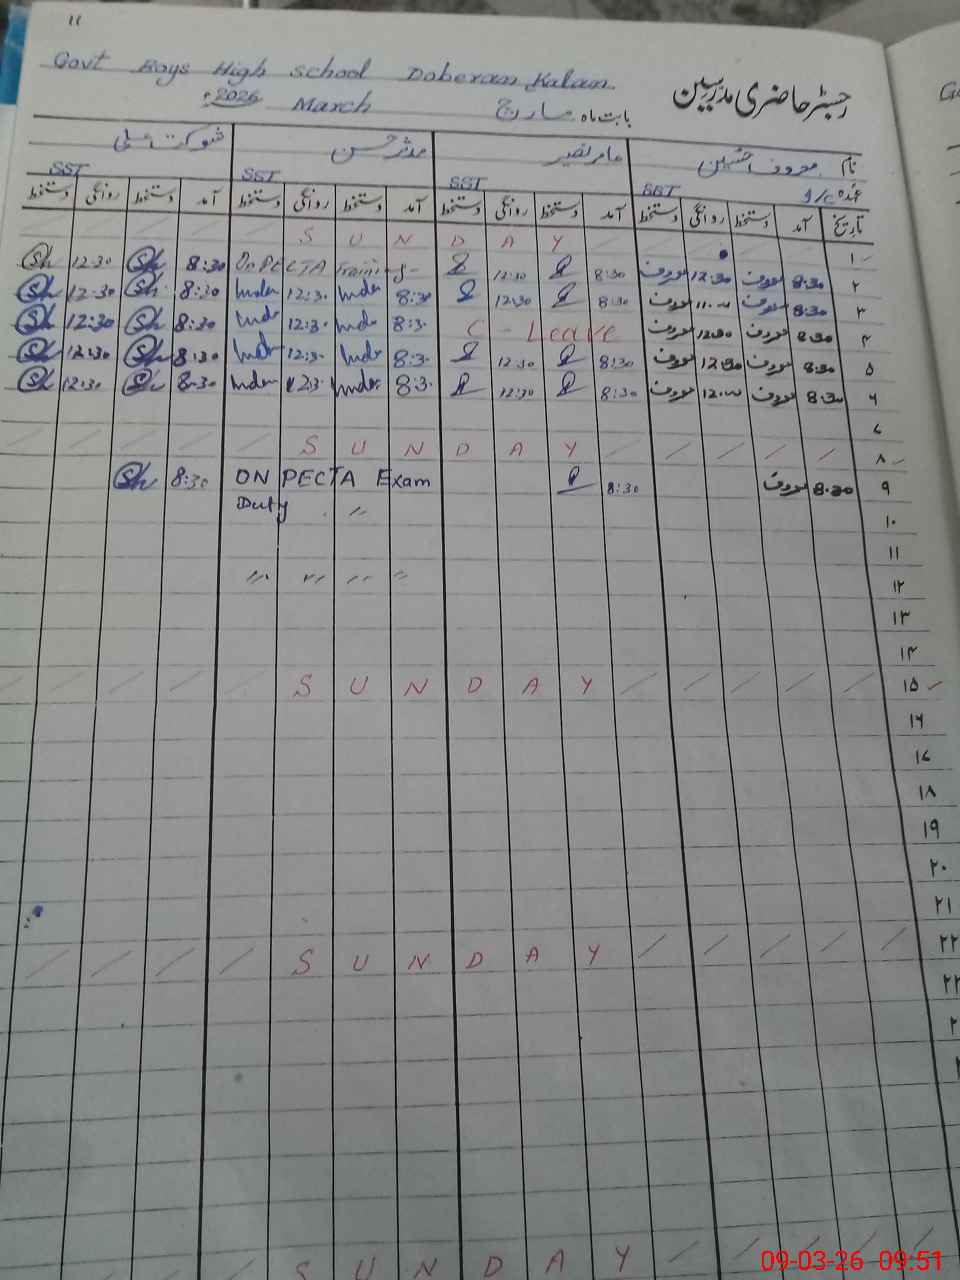 11
Govt Boys High School Doberan Kalan
رجسٹر حاضری مدرسین
بابت ماہ مارچ March 2026
نام معروف حسین عامر نصیر مدثر حسن شوکت علی
عہدہ I/C SST SST SST SST
تاریخ آمد دستخط روانگی دستخط آمد دستخط روانگی دستخط آمد دستخط روانگی دستخط آمد دستخط روانگی دستخط
۱ SUNDAY
۲ 8:30 معروف 12:30 معروف 8:30 12:30 On PECTA Training 8:30 Sh 12:30 Sh
۳ 8:30 معروف معروف 8:30 12:30 8:30 12:30 8:30 Sh 12:30 Sh
۴ 8:30 معروف 12:30 معروف C-Leave 8:3. 12:3. 8:30 Sh 12:30 Sh
۵ 8:30 معروف 12:30 معروف 8:30 12:30 8:3. 12:3. 8:30 Sh 12:30 Sh
۶ 8:30 معروف معروف 8:30 12:30 8:3. 12:3. 8:30 Sh 12:30 Sh
۷
۸ SUNDAY
۹ 8:30 معروف 8:30 ON PECTA Exam 8:30 Sh
۱۰ Duty 〃
۱۱
۱۲ 〃 〃 〃 〃
۱۳
۱۴
۱۵ SUNDAY
۱۶
۱۷
۱۸
۱۹
۲۰
۲۱
۲۲ SUNDAY
۲۳
SUNDAY
09-03-26 09:51